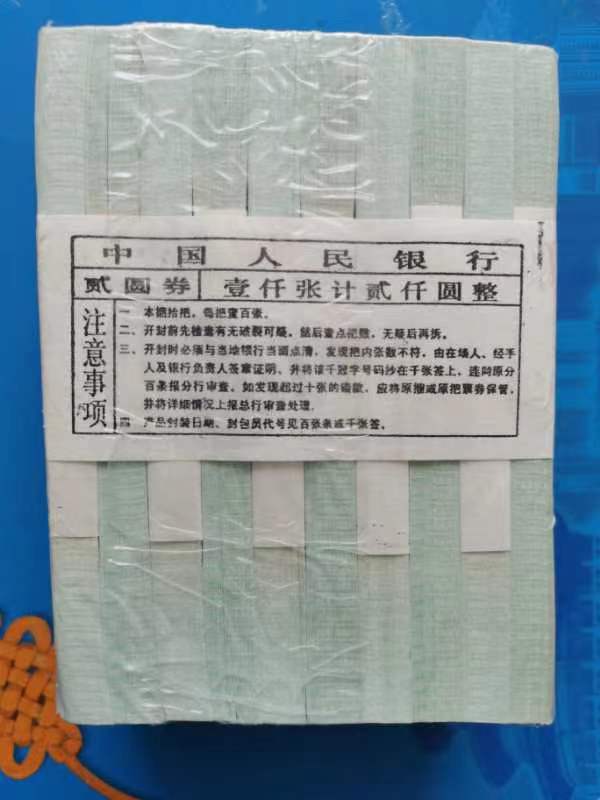 中国人民银行
贰圆券 壹仟张计贰仟圆整
注意事项
一、本捆拾把，每把壹百张。
二、开封前先检查有无破裂可疑，然后重点把数，无疑后再拆。
三、开封时必须与当地银行当面点清，发现把内张数不符，由在场人、经手
人及银行负责人签章证明，并将该千冠字号码抄在千张签上，连同原分
百条报分行审查。如发现超过十张的错款，应将原捆或原把票券保管，
并将详细情况上报总行审查处理.
四 产品封装日期、封包员代号见百张条或千张签。